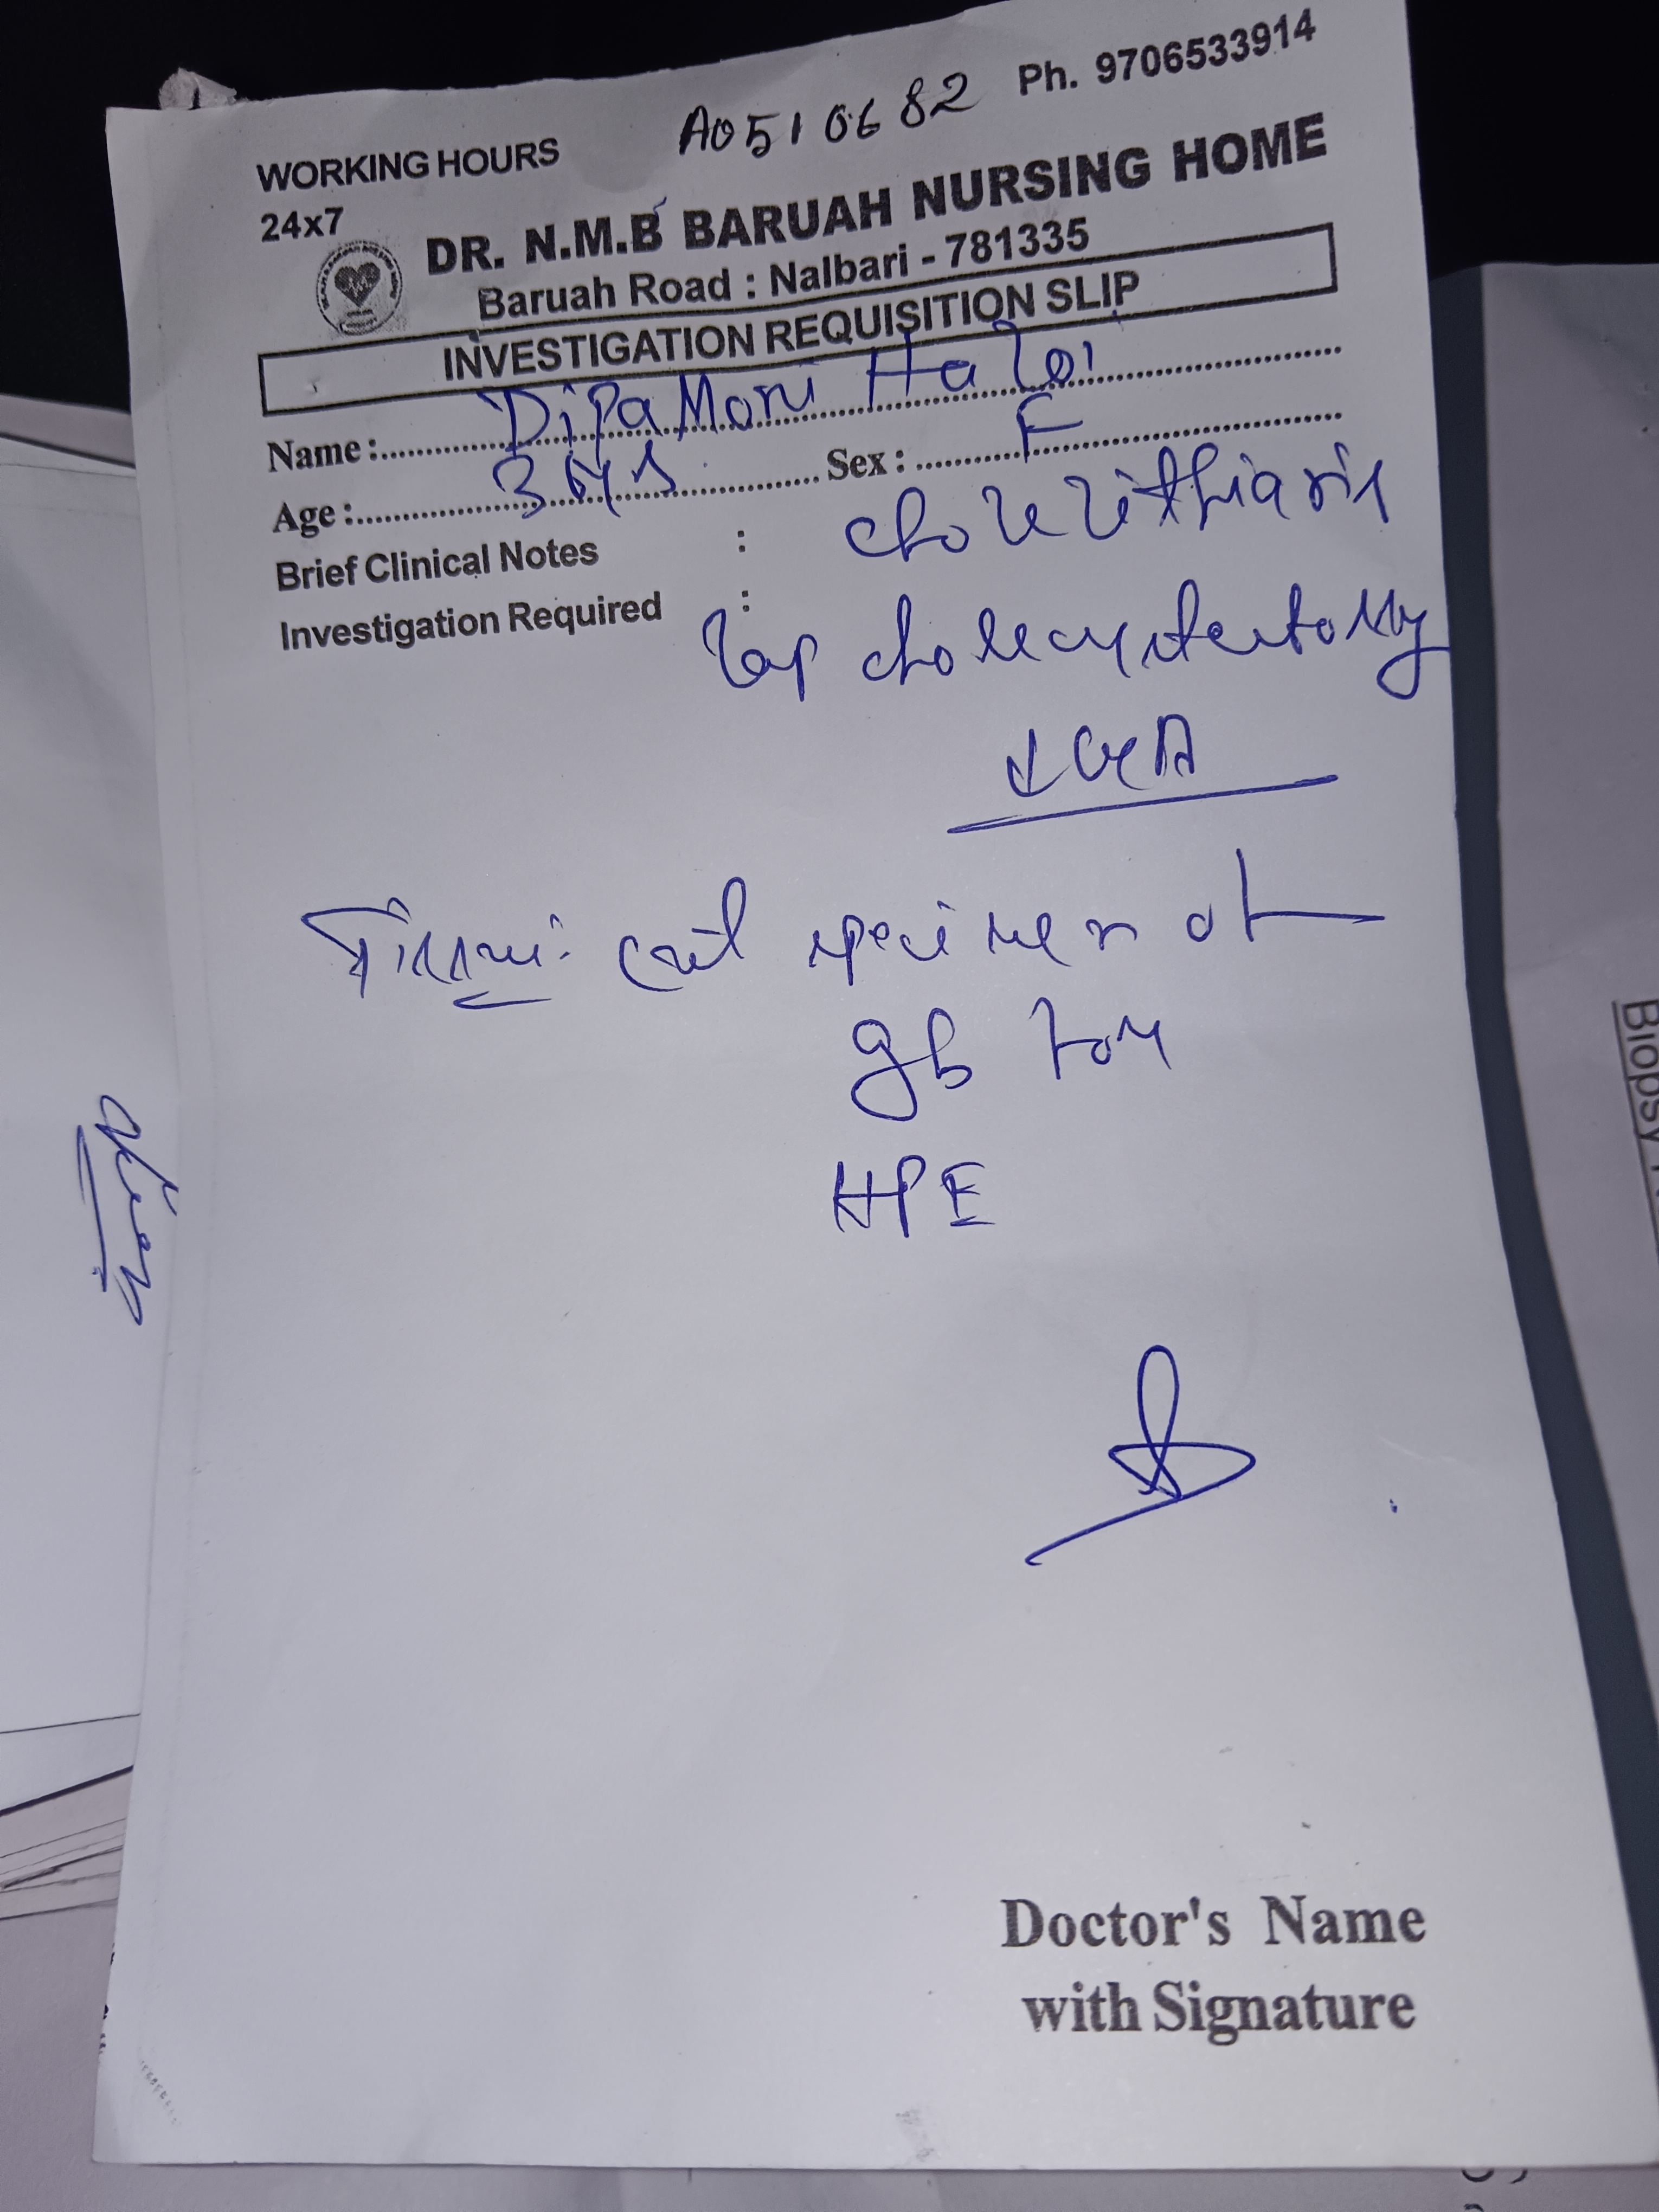 A0510682
Ph. 9706533914
WORKING HOURS
24x7
DR. N.M.B BARUAH NURSING HOME
Baruah Road : Nalbari - 781335
INVESTIGATION REQUISITION SLIP
Name : DipaMoni Haloi
Age : Sex : F
Brief Clinical Notes : Cholelithiasis
Investigation Required : Lap cholecystectomy
Tissue: specimen of
gb for
HPE
Doctor's Name
with Signature
Biopsy